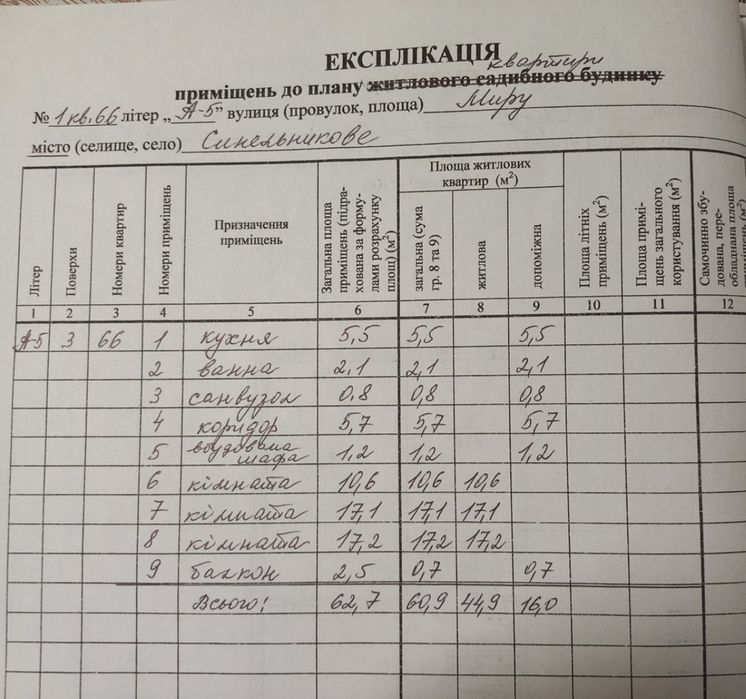 ЕКСПЛІКАЦІЯ
квартири
приміщень до плану житлового садибного будинку
№ 1 кв.66 літер „А-5” вулиця (провулок, площа) Миру
місто (селище, село) Синельникове
Літер Поверхи Номери квартир Номери приміщень Призначення приміщень Загальна площа приміщень (підрахована за формулами розрахунку площ) (м²) Площа житлових квартир (м²) загальна (сума гр. 8 та 9) житлова допоміжна Площа літніх приміщень (м²) Площа приміщень загального користування (м²) Самочинно збудована, переобладнана площа
1 2 3 4 5 6 7 8 9 10 11 12
А-5 3 66 1 кухня 5,5 5,5 5,5
2 ванна 2,1 2,1 2,1
3 санвузол 0,8 0,8 0,8
4 коридор 5,7 5,7 5,7
5 вбудована шафа 1,2 1,2 1,2
6 кімната 10,6 10,6 10,6
7 кімната 17,1 17,1 17,1
8 кімната 17,2 17,2 17,2
9 балкон 2,5 0,7 0,7
Всього: 62,7 60,9 44,9 16,0